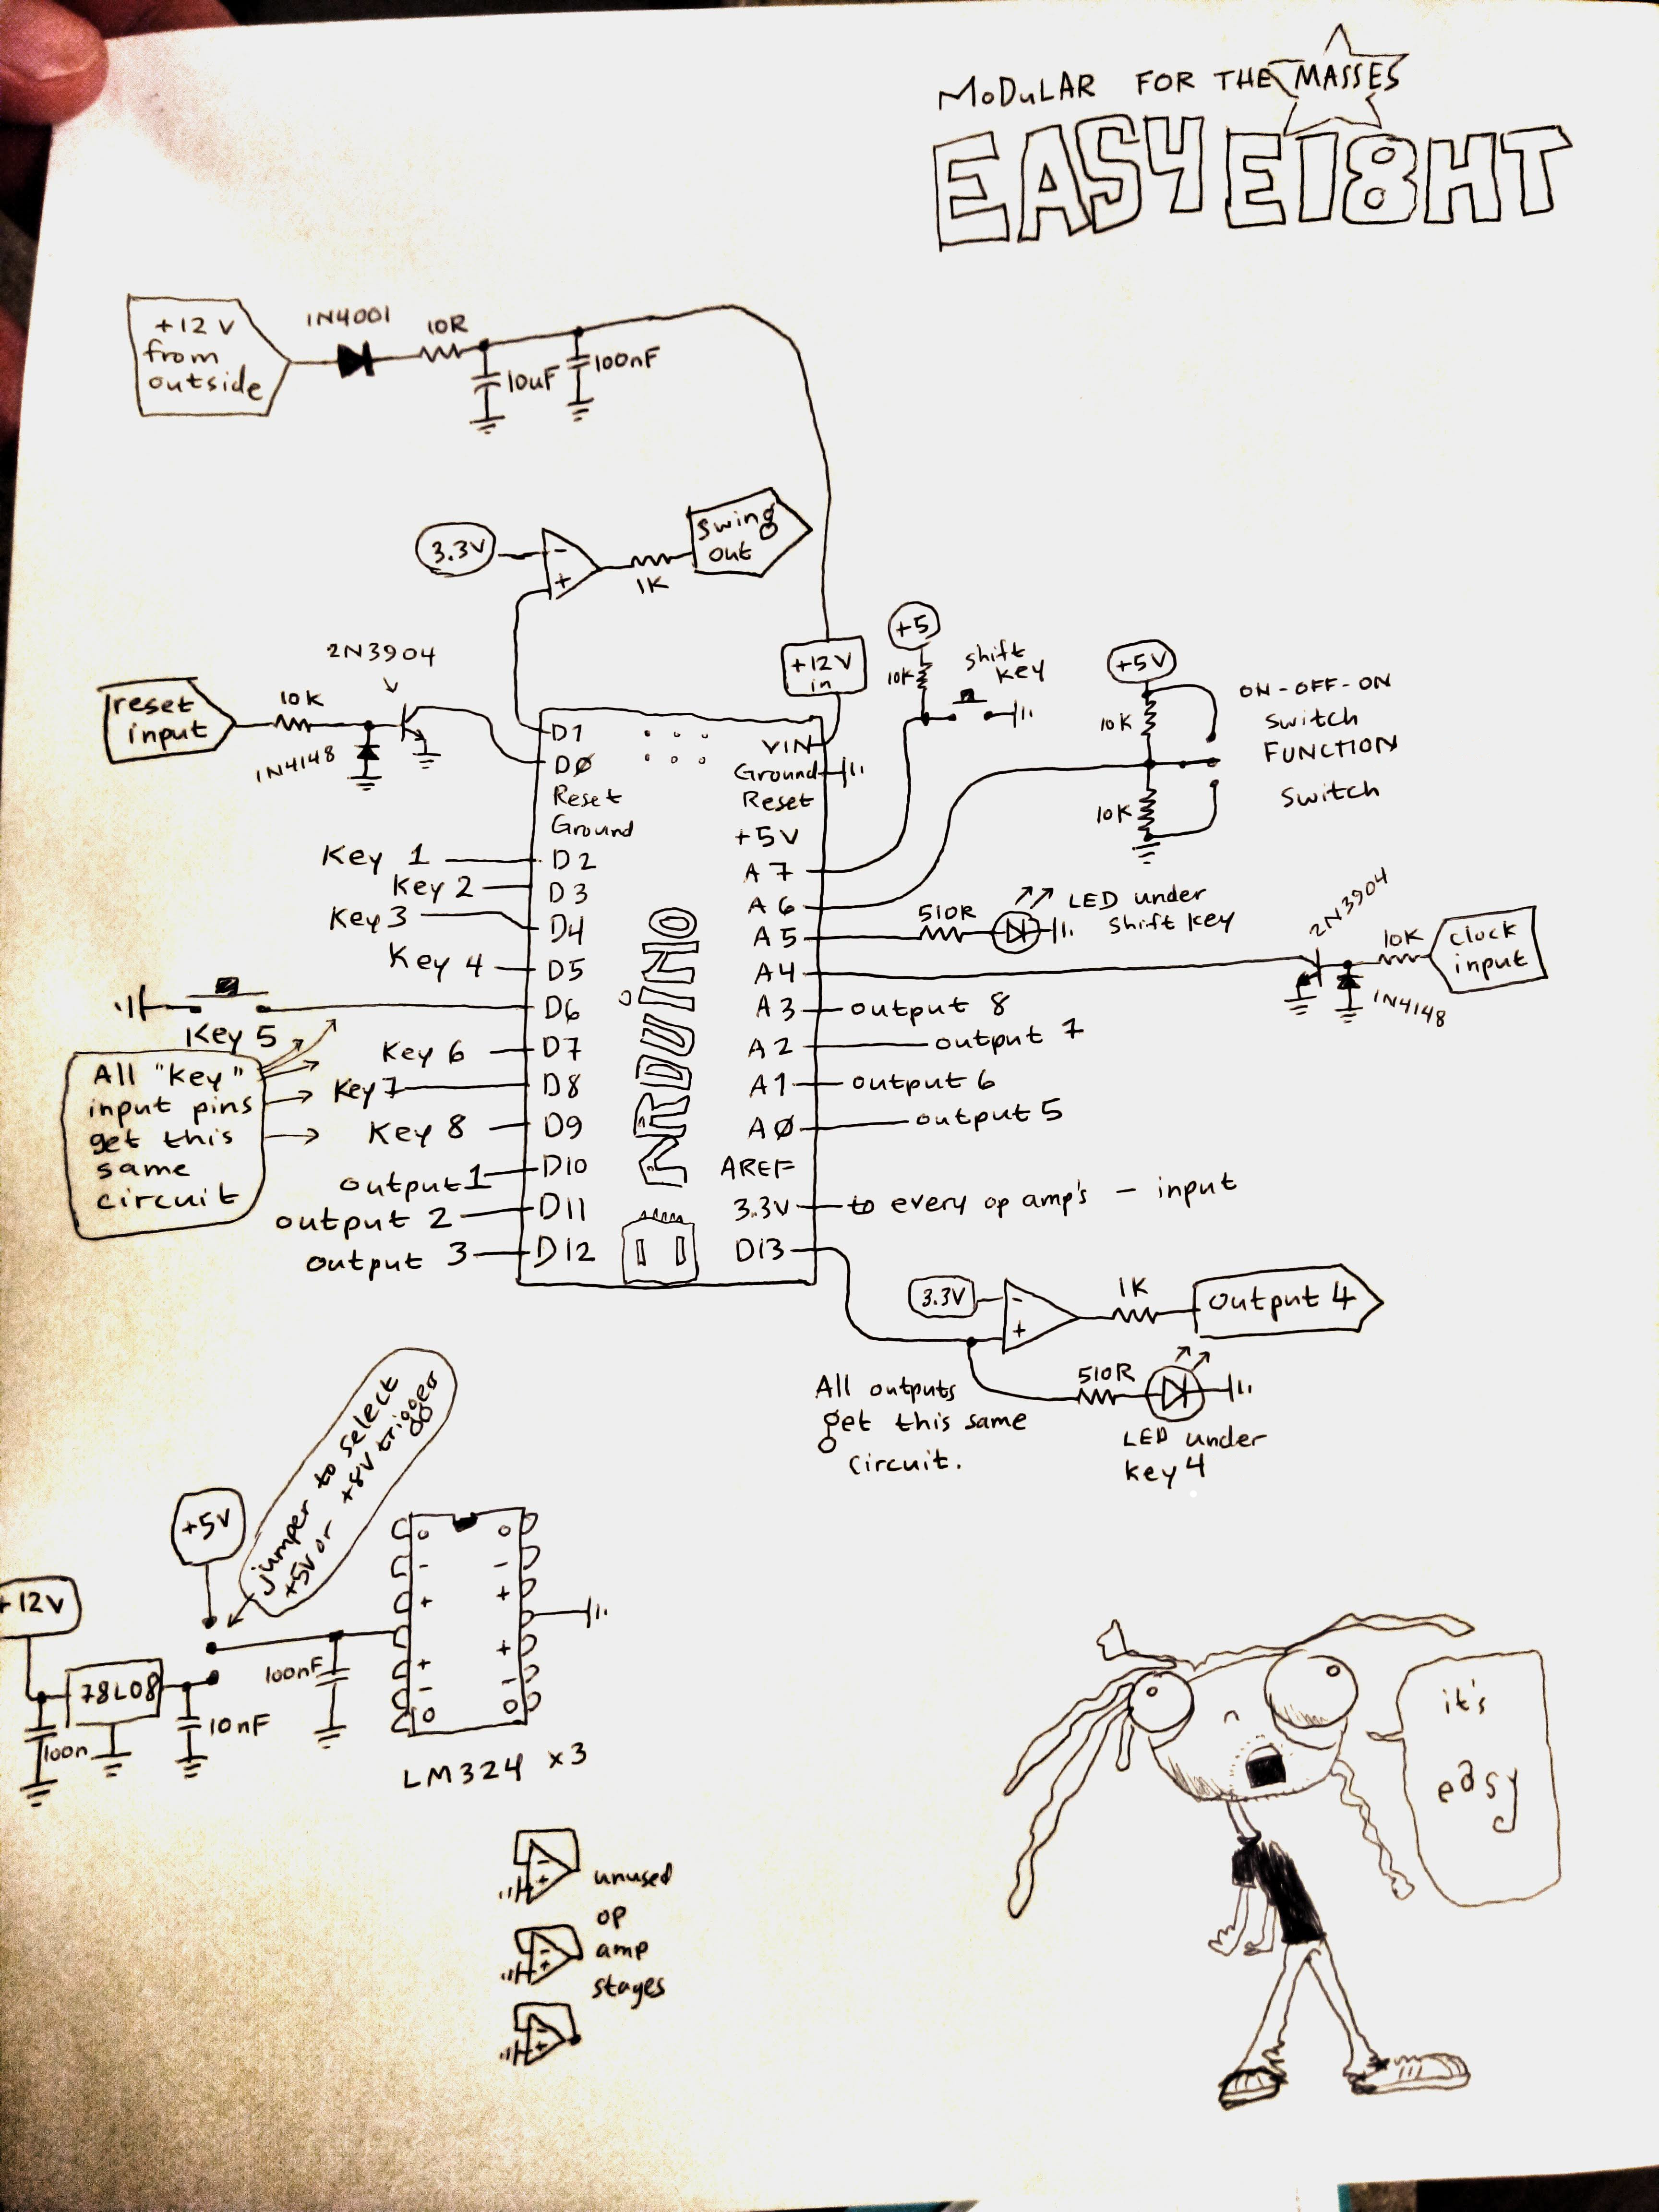 MODULAR FOR THE MASSES
EASY EI8HT
+12V
from
outside
1N4001
10R
10uF
100nF
3.3V
-
+
1K
Swing
out
2N3904
reset
input
10K
1N4148
+12V
in
+5
10K
shift
key
+5V
10K
10K
ON-OFF-ON
Switch
FUNCTION
Switch
D1
DØ
Reset
Ground
D2
D3
D4
D5
D6
D7
D8
D9
D10
D11
D12
VIN
Ground
Reset
+5V
A7
A6
A5
A4
A3
A2
A1
AØ
AREF
3.3V
D13
ARDUiNO
Key 1
Key 2
Key 3
Key 4
Key 5
Key 6
Key 7
Key 8
output 1
output 2
output 3
All "Key"
input pins
get this
same
circuit
510R
LED under
shift key
2N3904
10K
clock
input
1N4148
output 8
output 7
output 6
output 5
to every op amp's - input
3.3V
-
+
1K
Output 4
510R
LED under
key 4
All outputs
get this same
circuit.
jumper to select
+5V or +8V triggers
+5V
+12V
78L08
100n
10nF
100nF
o o
- -
+ +
+ +
- -
o o
LM324 x3
-
+
-
+
-
+
unused
op
amp
stages
it's
easy